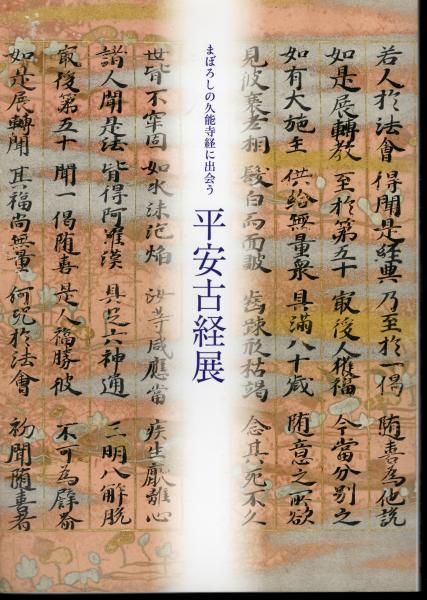 若人於法會 得聞是経典 乃至於一偈 随喜為他說
如是展轉教 至於第五十 㝡後人獲福 今當分別之
如有大施主 供給無量衆 具滿八十歳 随意之所欲
見彼衰老相 髮白而面皺 齒踈形枯竭 念其死不久
まぼろしの久能寺経に出会う
平安古経展
世皆不牢固 如水沫泡焔 汝等咸應當 疾生厭離心
諸人聞是法 皆得阿羅漢 具足六神通 三明八解脱
㝡後第五十 聞一偈随喜 是人福勝彼 不可為譬喻
如是展轉聞 其福尚無量 何況於法會 初聞随喜者